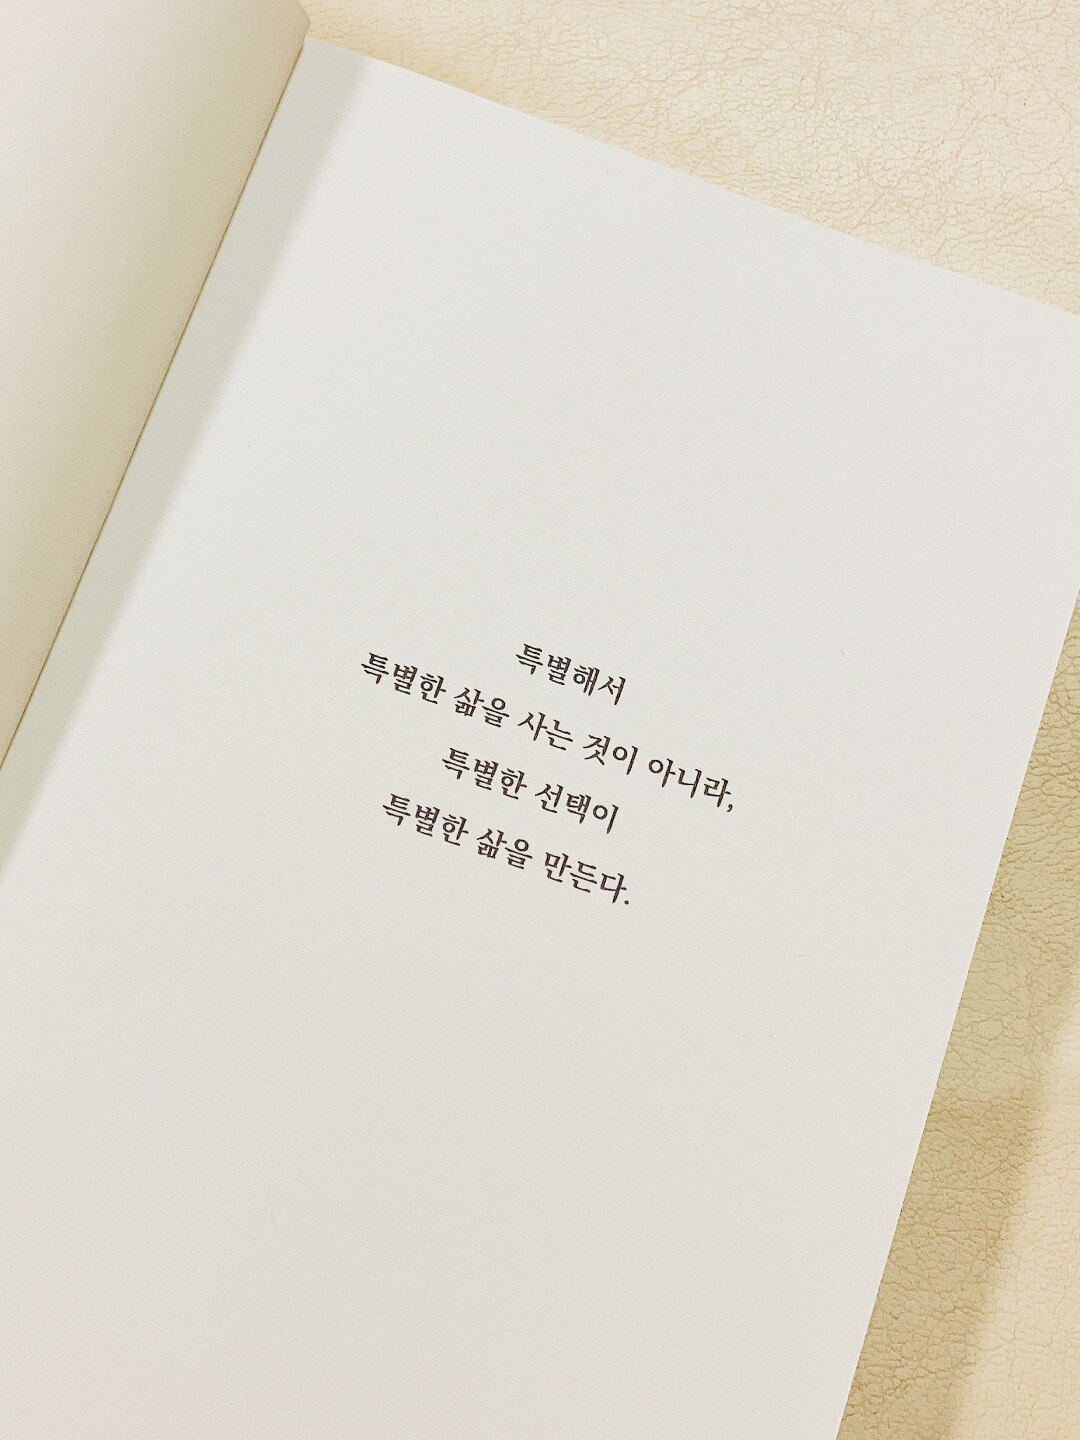 특별해서
특별한 삶을 사는 것이 아니라,
특별한 선택이
특별한 삶을 만든다.